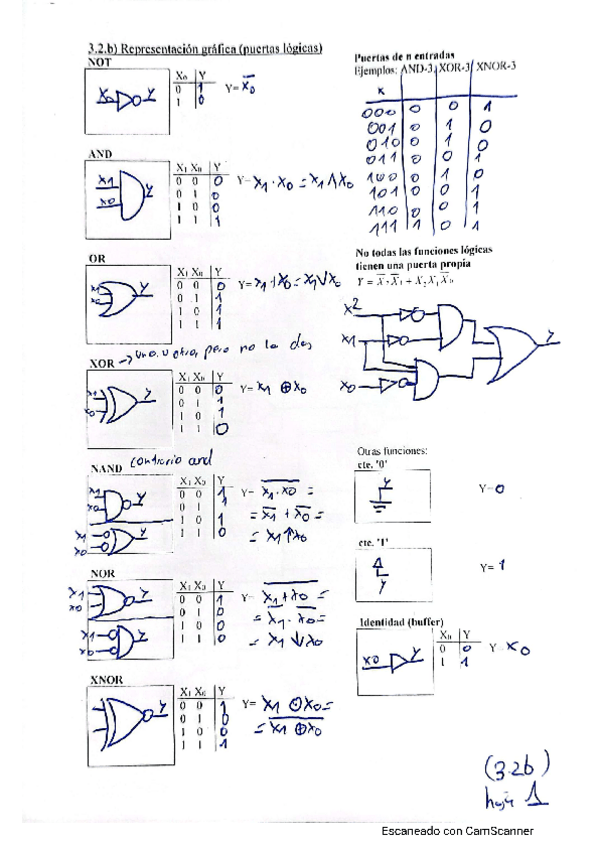 3.2.b) Representación gráfica (puertas lógicas)
NOT
X₀ Y
0 1
1 0
Y= X̅₀
X₀ Y
AND
X₁ X₀ Y
0 0 0
0 1 0
1 0 0
1 1 1
Y= X₁ · X₀ = X₁ ∧ X₀
X1 X0 Y
OR
X₁ X₀ Y
0 0 0
0 1 1
1 0 1
1 1 1
Y= X₁ + X₀ = X₁ ∨ X₀
X1 X0 Y
XOR → uno u otro, pero no la dos
X₁ X₀ Y
0 0 0
0 1 1
1 0 1
1 1 0
Y= X₁ ⊕ X₀
X1 X0 Y
NAND contrario and
X₁ X₀ Y
0 0 1
0 1 1
1 0 1
1 1 0
Y= \overline{X₁ · X₀} =
= X̅₁ + X̅₀ =
= X₁ ↑ X₀
X1 X0 Y
X1 X0 Y
NOR
X₁ X₀ Y
0 0 1
0 1 0
1 0 0
1 1 0
Y= \overline{X₁ + X₀} =
= X̅₁ · X̅₀ =
= X₁ ↓ X₀
X1 X0 Y
X1 X0 Y
XNOR
X₁ X₀ Y
0 0 1
0 1 0
1 0 0
1 1 1
Y= X₁ ⊙ X₀ =
= \overline{X₁ ⊕ X₀}
Y
Puertas de n entradas
Ejemplos: AND-3 XOR-3 XNOR-3
x
000 0 0 1
001 0 1 0
010 0 1 0
011 0 0 1
100 0 1 0
101 0 0 1
110 0 0 1
111 0
No todas las funciones lógicas
tienen una puerta propia
X2
X1
X0
Y
Otras funciones:
cte. '0'
Y
Y=0
cte. '1'
Y
Y= 1
Identidad (buffer)
X₀ Y
0 0
1 1
Y= X₀
X0 Y
(3.2b)
hoja 1
Escaneado con CamScanner